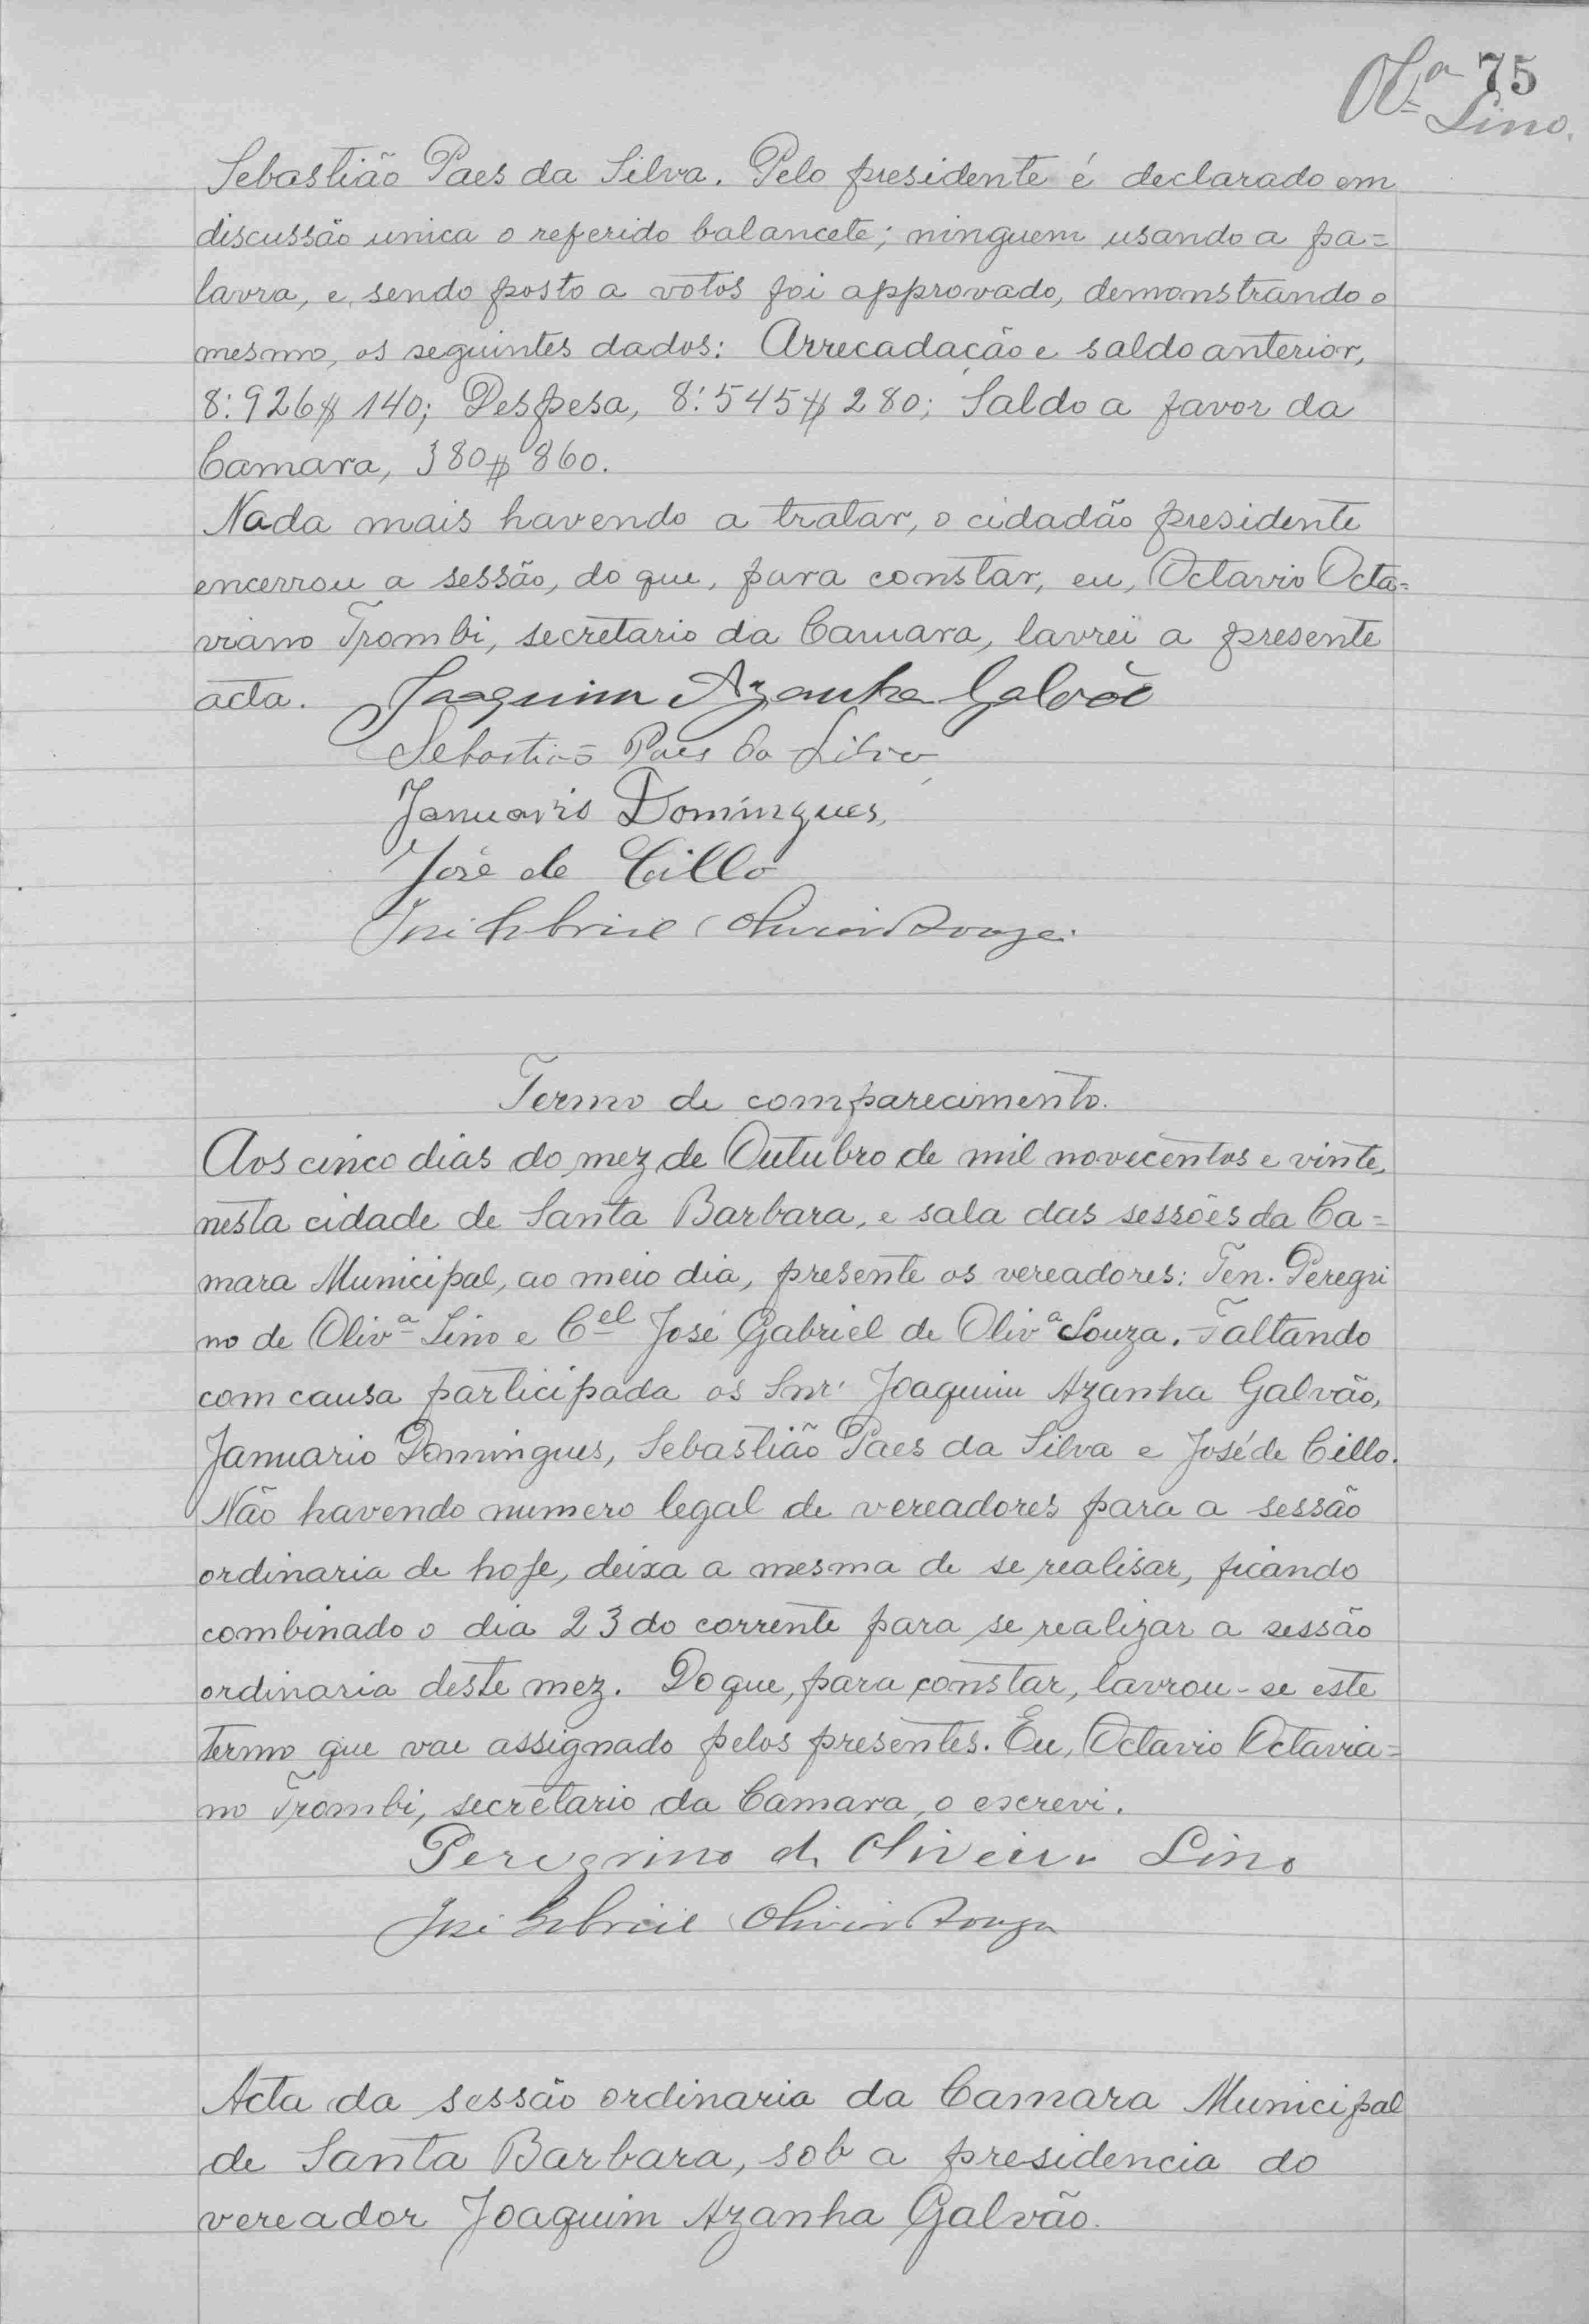 Olª 75
Lino.
Sebastião Paes da Silva. Pelo presidente é declarado em
discussão unica o referido balancete; ninguem usando a pa=
lavra, e sendo posto a votos foi approvado, demonstrando o
mesmo, os seguintes dados: Arrecadação e saldo anterior,
8:926$140; Despesa, 8:545$280; Saldo a favor da
Camara, 380$860.
Nada mais havendo a tratar, o cidadão presidente
encerrou a sessão, do que, para constar, eu, Octavio Octa=
viano Trombi, secretario da Camara, lavrei a presente
acta. Joaquim Azanha Galvão
Sebastião Paes da Silva
Januario Domingues,
José de Cillo
José Gabriel Oliveira Souza.
Termo de comparecimento.
Aos cinco dias do mez de Outubro de mil novecentos e vinte,
nesta cidade de Santa Barbara, e sala das sessões da Ca=
mara Municipal, ao meio dia, presente os vereadores: Ten. Peregri
no de Olivª Lino e Cel José Gabriel de Olivª Souza. Faltando
com causa participada os Snr. Joaquim Azanha Galvão,
Januario Domingues, Sebastião Paes da Silva e José de Cillo.
Não havendo numero legal de vereadores para a sessão
ordinaria de hoje, deixa a mesma de se realisar, ficando
combinado o dia 23 do corrente para se realizar a sessão
ordinaria deste mez. Do que, para constar, lavrou-se este
termo que vae assignado pelos presentes. Eu, Octavio Octavia=
no Trombi, secretario da Camara, o escrevi.
Peregrino de Oliveira Lino
José Gabriel Oliveira Souza
Acta da sessão ordinaria da Camara Municipal
de Santa Barbara, sob a presidencia do
vereador Joaquim Azanha Galvão.